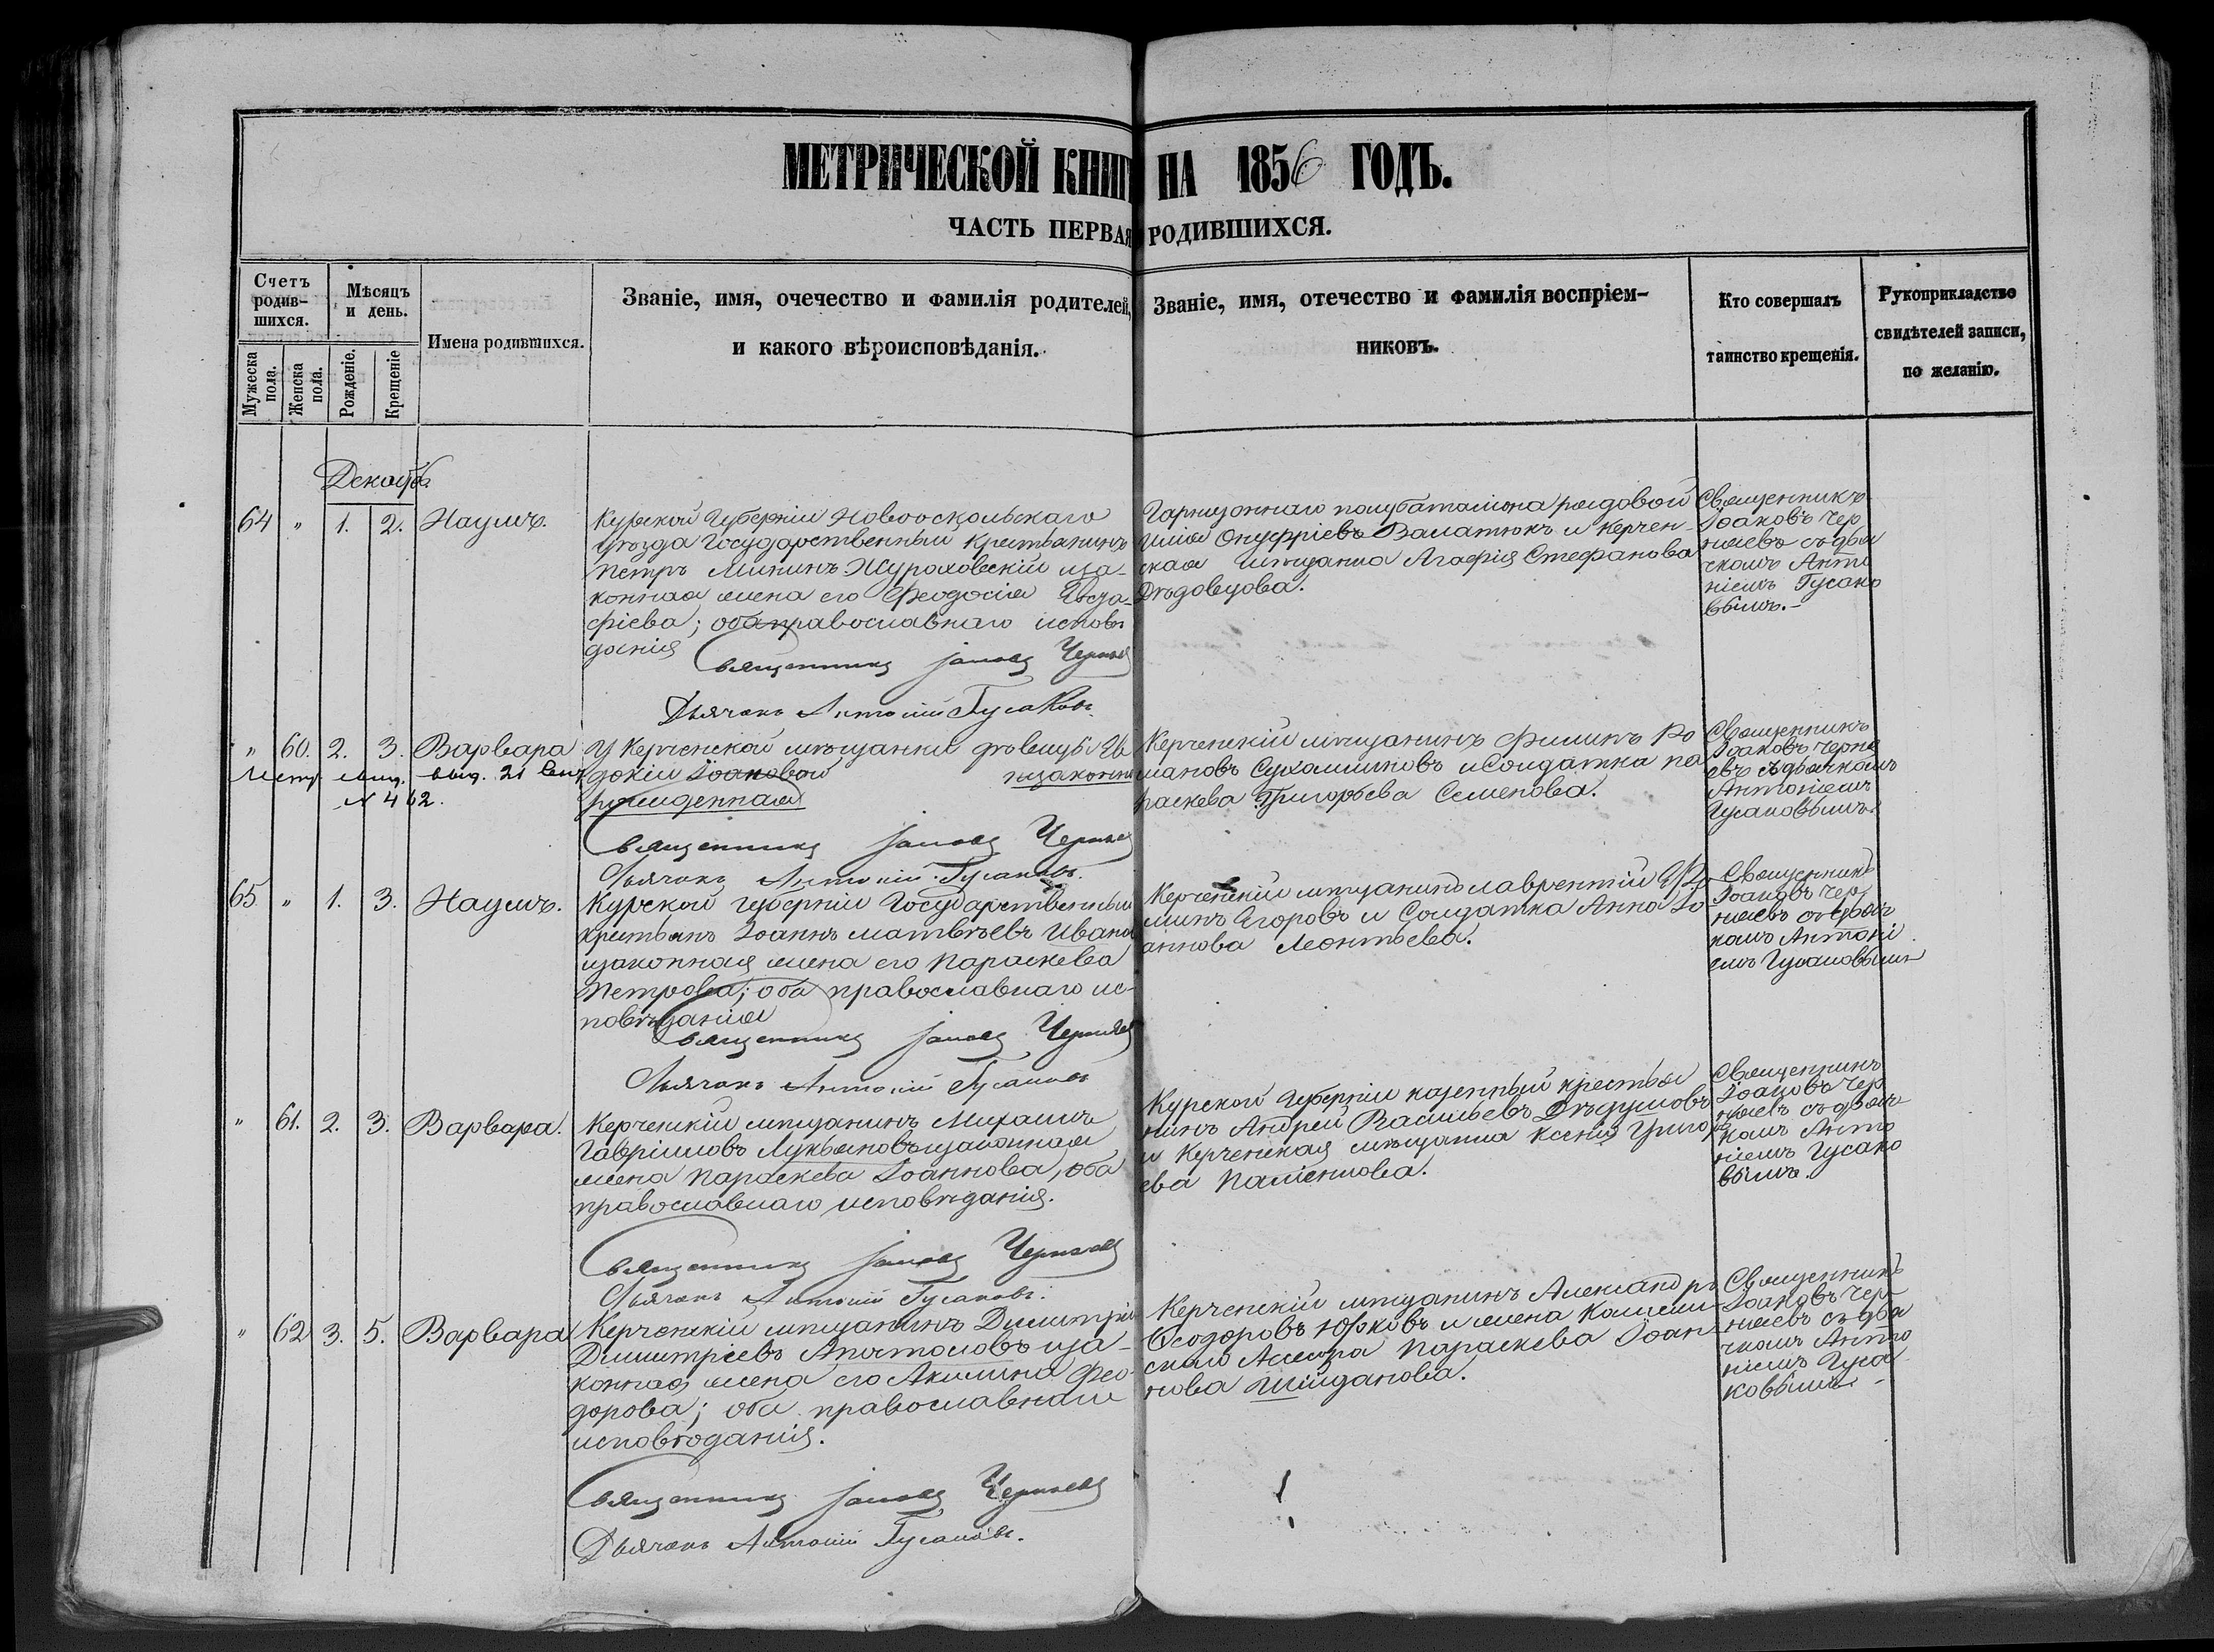 МЕТРИЧЕСКОЙ КНИГ НА 1856 ГОДЪ.
ЧАСТЬ ПЕРВАЯ РОДИВШИХСЯ.
Счетъ родив-шихся.
Мѣсяцъ и день.
Мужеска пола.
Женска пола.
Рожденіе.
Крещеніе
Имена родившихся.
Званіе, имя, очечество и фамилія родителей,
и какого вѣроисповѣданія.
Званіе, имя, отечество и фамилія воспріем-
никовъ.
Кто совершалъ
таинство крещенія.
Рукоприкладство
свидѣтелей записи,
по желанію.
Декабрь
64 " 1. 2. Наумъ.
Курской Губерніи Новооскольскаго
Уѣзда Государственный Крестьянинъ
Петръ Мининъ Жураховскій иза-
конная жена его Феодосія
фіева; оба православнаго исповѣ
данія
Священникъ Іаковъ Черняев
Дьячокъ Антоній Гусаковъ.
Гарнизоннаго полубаталіона рядовой
Онуфріевъ Валатюкъ и Керчен-
ская мѣщанка Агафія Стефанова
Дѣдовцова.
Священникъ
Іоаковъ Чер
няевъ съ дья
чкомъ Анто
ніемъ Гусако
вымъ.-
" 60. 2. 3. Варвара
Метр. выд. 21 Сен.
№ 462.
У Керченской мѣщанки дѣвицы Ев
докіи Іоаковой незаконно
рожденная
Священникъ Іаковъ Черняев
Дьячокъ Антоній Гусаковъ.
Керченскій мѣщанинъ Филипъ Ро
мановъ и Солдатка Па
раскева Григорьева Семенова.
Священникъ
Іоаковъ Черня
евъ съ дьячкомъ
Антоніемъ
Гусаковымъ.
65 " 1. 3. Наумъ.
Курской губерніи Государственный
крестьянъ Іоаннъ Матвѣевъ Ивано
изаконная жена его Параскева
Петрова; оба православнаго ис-
повѣданія
Священникъ Іаковъ Черняев
Дьячокъ Антоній Гусаковъ
Керченскій мѣщанинъ Лаврентій
Егоровъ и Солдатка Анна Іо-
аннова Леонтьева.
Священникъ
Іоаковъ Чер
няевъ съ дьяч
комъ Антоні
емъ Гусаковымъ
" 61. 2. 3. Варвара.
Керченскій мѣщанинъ Михаилъ
Гавріиловъ Лукьяновъ изаконная
жена Параскева Іоаннова, оба
православнаго исповѣданія.
Священникъ Іаковъ Черняевъ
Дьячокъ Антоній Гусаковъ.
Курской Губерніи казенный крестья
нинъ Андрей Васильевъ Дѣдушовъ
и Керченская мѣщанка Ксенія Григорь
ева
Священникъ
Іоаковъ Чер
няевъ съ дьяч
комъ Анто
ніемъ Гусако
вымъ.
" 62 3. 5. Варвара
Керченскій мѣщанинъ Димитрій
Димитріевъ Апостоловъ иза-
конная жена его Акилина Фео-
дорова; оба православнаго
исповѣданія.
Священникъ Іаковъ Черняевъ
Дьячокъ Антоній Гусаковъ.
Керченскій мѣщанинъ Александръ
Ѳеодоровъ Юрковъ и жена
Параскева Іоан-
нова
Священникъ
Іоаковъ Чер-
няевъ съ дья
чкомъ Анто
ніемъ Гуса
ковымъ. -